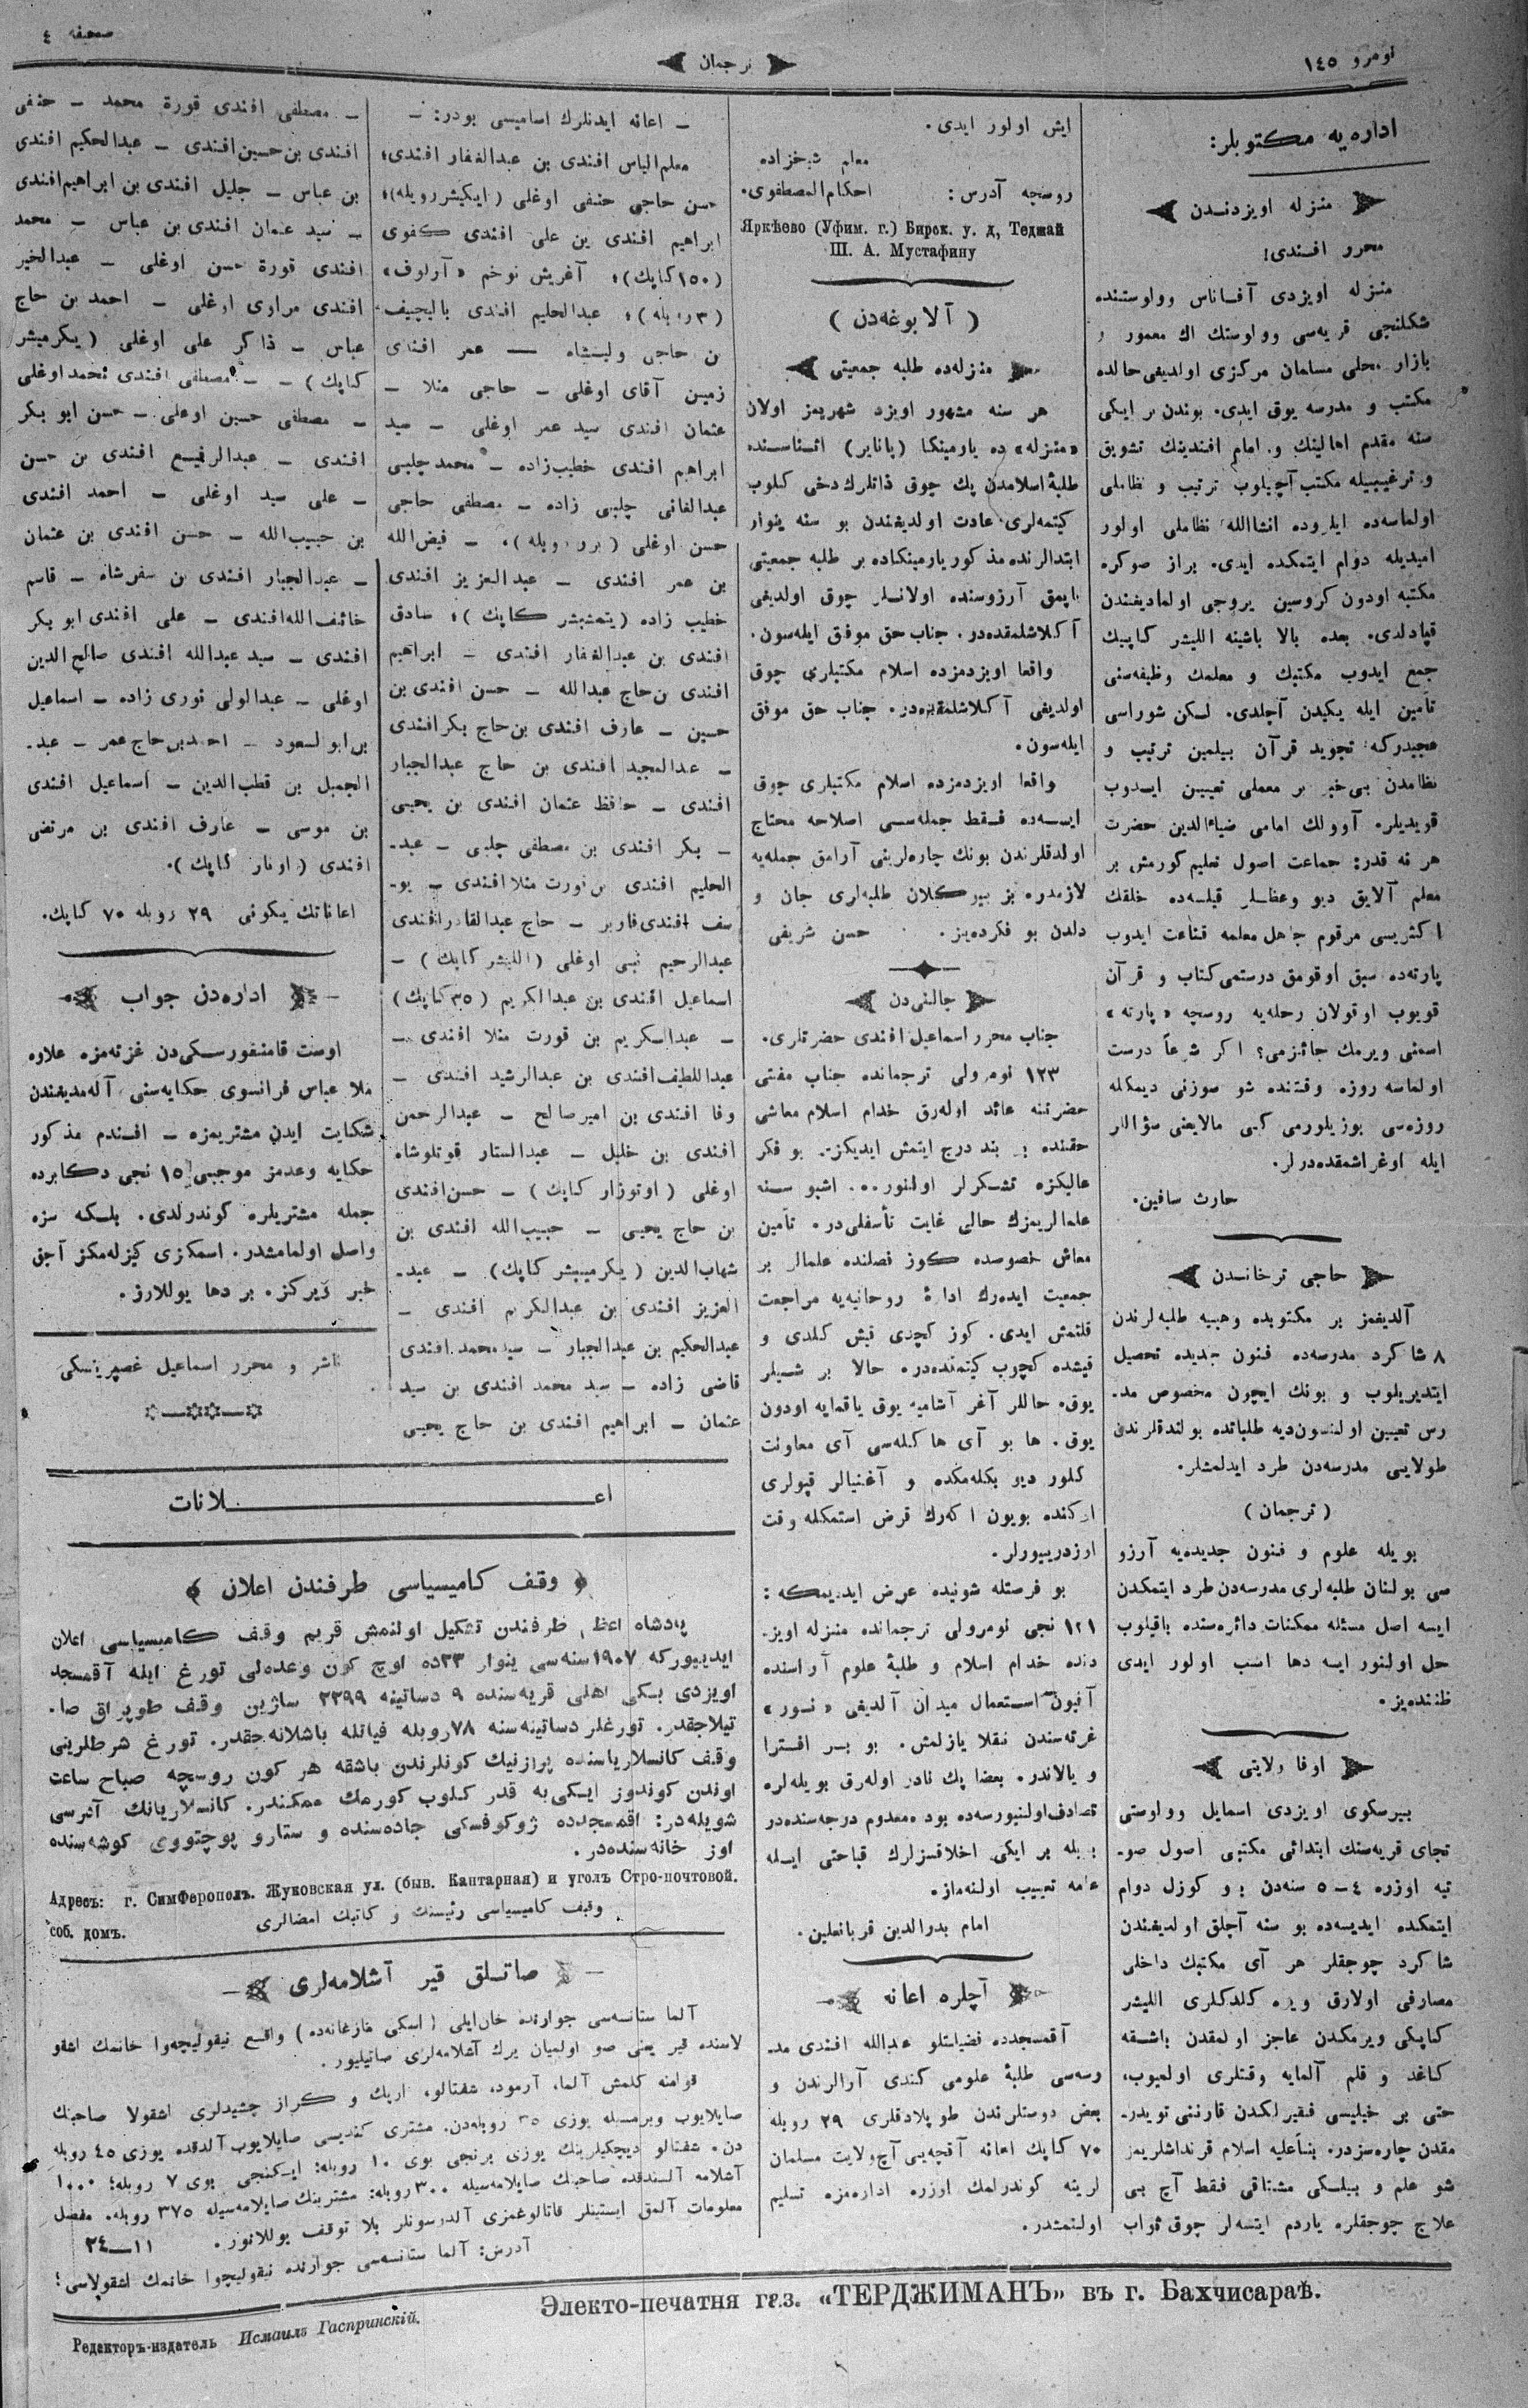 نومرو ١٤٥
ترجمان
صحیفه ٤
اداره‌یه مكتوبلر:
منزله اویزدندن
محرر افندی!
منزله اویزدی آفاناس وولوستنده
شكلنجی قریه‌سی وولوستك اك معمور و
بازار محلی مسلمان مركزی اولدیغی حالده
مكتب و مدرسه یوق ایدی. بوندن بر ایكی
سنه مقدم اهالینك و امام افندینك تشویق
و ترغیبیله مكتب آچیلوب ترتیب و نظاملی
اولماسه‌ده ایلروده انشاالله نظاملی اولور
امیدیله دوام ایتمكده ایدی. براز صوكره
مكتبه اودون كروسین یروجی اولمادیغندن
قپادلدی. بعده بالا باشینه اللیشر كاپیك
جمع ایدوب مكتبك و معلمك وظیفه‌سنی
تأمین ایله یكیدن آچلدی. لكن شوراسی
عجیدركه تجوید قرآن بیلمین ترتیب و
نظامدن بی‌خبر بر معملی تعیین ایدوب
قویدیلر. آوولك امامی ضیاءالدین حضرت
هر نه قدر: جماعت اصول تعلیم كورمش بر
معلم آلایق دیو وعظلر قیلسه‌ده خلقك
اكثریسی مرقوم جاهل معلمه قناعت ایدوب
پارته‌ده سبق اوقومق درستمی كتاب و قرآن
قویوب اوقولان رحله‌یه روسچه «پارته»
اسمنی ویرمك جائزمی؟ اكر شرعاً درست
اولماسه روزه وقتنده شو سوزنی دیمكله
روزه‌سی بوزیلورمی كبی مالایعنی سؤاللر
ایله اوغراشمقده‌درلر.
حارث سافین.
حاجی ترخانسدن
آلدیغمز بر مكتوبده وهبیه طلبه‌لرندن
٨ شاكرد مدرسه‌ده فنون جدیده تحصیل
ایتدیریلوب و بونك ایچون مخصوص مد-
رس تعیین اولنسون‌دیه طلباتده بولندقلرندن
طولایی مدرسه‌دن طرد ایدلمشلر.
(ترجمان)
بویله علوم و فنون جدیده‌یه آرزو
صی بولنان طلبه‌لری مدرسه‌دن طرد ایتمكدن
ایسه اصل مسئله ممكنات دائره‌سنده باقیلوب
حل اولنور ایسه دها انسب اولور ایدی
ظننده‌یز.
اوفا ولایتی
بیرسكوی اویزدی اسمایل وولوستی
تجای قریه‌سنك ابتدائی مكتبی اصول صو-
تیه اوزره ٤-٥ سنه‌دن برو كوزل دوام
ایتمكده ایدیسه‌ده بو سنه آچلق اولدیغندن
شاكرد چوجقلر هر آی مكتبك داخلی
مصارفی اولارق ویره كلدكلری اللیشر
كاپكی ویرمكدن عاجز اولمقدن باشقه
كاغد و قلم آلمایه وقتلری اولمیوب،
حتی بر خیلیسی فقیرلكدن قارننی تویدر-
مقدن چاره‌سزدر. بناًعلیه اسلام قرنداشلریمز
شو علم و بیلكی مشتاقی فقط آچ بی
علاج چوجقلره یاردم ایتسه‌لر چوق ثواب
ایش اولور ایدی.
معلم شیخزاده
روسچه آدرس: احكام‌المصطفوی.
Яркѣево (Уфим. г.) Бирск. у. д, Теджай
Ш. А. Мустафину
(آلابوغه‌دن)
منزله‌ده طلبه جمعیتی
هر سنه مشهور اویزد شهریمز اولان
«منزله» ده یارمینكا (پانایر) اثناسنده
طلبهٔ اسلامدن پك چوق ذاتلرك دخی كلوب
كیتمه‌لری عادت اولدیغندن بو سنه ینوار
ابتدالرنده مذكور یارمینكاده بر طلبه جمعیتی
یاپمق آرزوسنده اولانلر چوق اولدیغی
آكلاشلمقده‌در. جناب حق موفق ایله‌سون.
واقعا اویزدمزده اسلام مكتبلری چوق
اولدیغی آكلاشلمقده‌در. جناب حق موفق
ایله‌سون.
واقعا اویزدمزده اسلام مكتبلری چوق
ایسه‌ده فقط جمله‌سی اصلاحه محتاج
اولدقلرندن بونك چاره‌لرینی آرامق جمله‌یه
لازمدر. بز بیركلان طلبه‌لری جان و
دلدن بو فكرده‌یز. حسن شریفی
چالنی‌دن
جناب محرر اسماعیل افندی حضرتلری.
١٢٣ نومرولی ترجمانده جناب مفتی
حضرتنه عائد اوله‌رق خدام اسلام معاشی
حقنده بر بند درج ایتمش ایدیكز. بو فكر
عالیكزه تشكرلر اولنور... اشبو سنه
علمالریمزك حالی غایت تأسفلی‌در. تأمین
معاش خصوصده كوز فصلنده علمالر بر
جمعیت ایده‌رك ادارهٔ روحانیه‌یه مراجعت
قلنمش ایدی. كوز كچدی قیش كلدی و
قیشده كچوب كیتمقده‌در. حالا بر شیلر
یوق. حاللر آغر آشامیه یوق یاقمایه اودون
یوق. ها بو آی ها كله‌سی آی معاونت
كلور دیو بكله‌مكده و آغنیالر قپولری
اركنده بویون اكه‌رك قرض استمكله وقت
اوزدریبورلر.
بو فرصتله شونیده عرض ایدریمكه:
١٢١ نجی نومرولی ترجمانده منزله اویز-
دنده خدام اسلام و طلبهٔ علوم آراسنده
آفیون استعمال میدان آلدیغی «نور»
غزته‌سندن نقلا یازلمش. بو بر افترا
و یالاندر. بعضا پك نادر اوله‌رق بویله‌لره
تصادف‌اولنیورسه‌ده بوده معدوم درجه‌سنده‌در
بویله بر ایكی اخلاقسزلرك قباحتی ایله
عامه تعییب اولنه‌ماز.
امام بدرالدین قربانعلین.
آچلره اعانه
آقمسجدده فضیلتلو عبدالله افندی مد-
رسه‌سی طلبهٔ علومی كندی آرالرندن و
بعض دوستلرندن طوپلادقلری ٢٩ روبله
٧٠ كاپك اعانه آقچه‌یی آچ ولایت مسلمان
لرینه كوندرلمك اوزره اداره‌مزه تسلیم
اولنمشدر.
- اعانه ایدنلرك اسامیسی بودر: -
معلم الیاس افندی بن عبدالغفار افندی؛
حسن حاجی حنفی اوغلی (ایكیشر روبله)؛
ابراهیم افندی بن علی افندی كفوی
(١٥٠ كاپك)؛ آغریش نوخم «آرلوف»
(٣ روبله)؛ عبدالحلیم افندی بالیچیف،
ن حاجی ولیشاه — عمر افندی
زمین آقای اوغلی - حاجی منلا -
عثمان افندی سید عمر اوغلی - سید
ابراهیم افندی خطیب‌زاده - محمد چلبی
عبدالغانی چلبی زاده - مصطفی حاجی
حسن اوغلی (برر روبله)، - فیض‌الله
بن عمر افندی - عبدالعزیز افندی
خطیب زاده (یتمشبشر كاپك)؛ سادق
افندی بن عبدالغفار افندی - ابراهیم
افندی بن حاج عبدالله - حسن افندی بن
حسین - عارف افندی بن حاج بكر افندی
- عبدالمجید افندی بن حاج عبدالجبار
افندی - حافظ عثمان افندی بن یحیی
- بكر افندی بن مصطفی چلبی - عبد-
الحلیم افندی بن نورت منلا افندی - یو-
سف افندی فاربر - حاج عبدالقادر افندی
عبدالرحیم نبی اوغلی (اللیشر كاپك) -
اسماعیل افندی بن عبدالكریم (٣٥ كاپك)
- عبدالكریم بن قورت منلا افندی -
عبداللطیف افندی بن عبدالرشید افندی -
وفا افندی بن امیرصالح - عبدالرحمن
افندی بن خلیل - عبدالستار قوتلوشاه
اوغلی (اوتوزار كاپك) - حسن افندی
بن حاج یحیی - حبیب‌الله افندی بن
شهاب‌الدین (یكرمیبشر كاپك) - عبد-
العزیز افندی بن عبدالكریم افندی -
عبدالحكیم بن عبدالجبار - سیدمحمد افندی
قاضی زاده - سید محمد افندی بن سید
عثمان - ابراهیم افندی بن حاج یحیی
- مصطفی افندی قورة محمد - حنفی
افندی بن حسین افندی - عبدالحكیم افندی
بن عباس - جلیل افندی بن ابراهیم افندی
- سید عثمان افندی بن عباس - محمد
افندی قورة حسن اوغلی - عبدالخیر
افندی مراوی اوغلی - احمد بن حاج
عباس - ذاكر علی اوغلی (یكرمیشر
كاپك) - - مصطفی افندی محمد اوغلی
- مصطفی حسین اوغلی - حسن ابو بكر
افندی - عبدالرفیع افندی بن حسن
- علی سید اوغلی - احمد افندی
بن حبیب‌الله - حسن افندی بن عثمان
- عبدالجبار افندی بن سفرشاه - قاسم
خائف‌الله افندی - علی افندی ابو بكر
افندی - سید عبدالله افندی صالح الدین
اوغلی - عبدالولی نوری زاده - اسماعیل
بن ابوالسعود - احمد بن حاج عمر - عبد-
الجمیل بن قطب‌الدین - اسماعیل افندی
بن موسی - عارف افندی بن مرتضی
افندی (اونار كاپك).
اعاناتك یكونی ٢٩ روبله ٧٠ كاپك.
اداره‌دن جواب
اوست قامنفورسكی‌دن غزته‌مزه علاوه
ملا عباس فرانسوی حكایه‌سنی آله‌مدیغندن
شكایت ایدن مشتریمزه - افندم مذكور
حكایه وعدمز موجبی ١٥ نجی دكابرده
جمله مشتریلره كوندرلدی. بلكه سزه
واصل اولمامشدر. اسمكزی كیزله‌مكز آچق
خبر ویركز. بر دها یوللارز.
ناشر و محرر اسماعیل غصپرینسكی
اعـــــلانات
﴿ وقف كامیسیاسی طرفندن اعلان ﴾
پادشاه اعظم طرفندن تشكیل اولنمش قریم وقف كامیسیاسی اعلان
ایدییوركه ١٩٠٧ سنه‌سی ینوار ٢٣ده اوچ كون وعده‌لی تورغ ایله آقمسجد
اویزدی بسكی اهلی قریه‌سنده ٩ دساتینه ٢٣٩٩ ساژین وقف طوپراق صا-
تیلاجقدر. تورغلر دساتینه‌سنه ٧٨ روبله فیاتله باشلانه‌جقدر. تورغ شرطلرینی
وقف كانسلاریاسنده پرازنیك كونلرندن باشقه هر كون روسچه صباح ساعت
اوندن كوندوز ایكی‌یه قدر كلوب كورمك ممكندر. كانسلاریانك آدرسی
شویله‌در: اقمسجدده ژوكوفسكی جاده‌سنده و ستارو پوچتووی كوشه‌سنده
اوز خانه‌سنده‌در.
Адресъ: г. Симферополь. Жуковская ул. (быв. Кантарная) и уголъ Стро-почтовой.
соб. домъ.
وقف كامیسیاسی رئیسنك و كاتبك امضالری
صاتلق قیر آشلامه‌لری
آلما ستانسه‌سی جوارنده خان‌ایلی (اسكی غازغانه‌ده) واقع نیقولیچه‌وا خانمك اشقو
لاسنده قیر یعنی صو اولمیان یرك آشلامه‌لری صاتیلیور.
قوامنه كلمش آلما، آرمود، شفتالو، اریك و كراز چشیدلری اشقولا صاحبنك
صایلایوب ویرمسیله یوزی ٣٥ روبله‌دن. مشتری كندیسی صایلایوب آلدقده یوزی ٤٥ روبله
دن. شفتالو دیچكیلرینك یوزی برنجی بوی ١٠ روبله: ایكنجی بوی ٧ روبله؛ ١٠٠٠
آشلامه آلندقده صاحبنك صایلامه‌سیله ٣٠٠ روبله: مشترینك صایلامه‌سیله ٣٧٥ روبله. مفصل
معلومات آلمق ایستینلر قاتالوغمزی آلدرسونلر بلا توقف یوللانور. ١١—٢٤
آدرس: آلما ستانسه‌سی جوارنده نیقولیچوا خانمك اشقولاسی؛
Электо-печатня газ. «ТЕРДЖИМАНЪ» въ г. Бахчисараѣ.
Редакторъ-издатель Исмаилъ Гаспринскій.